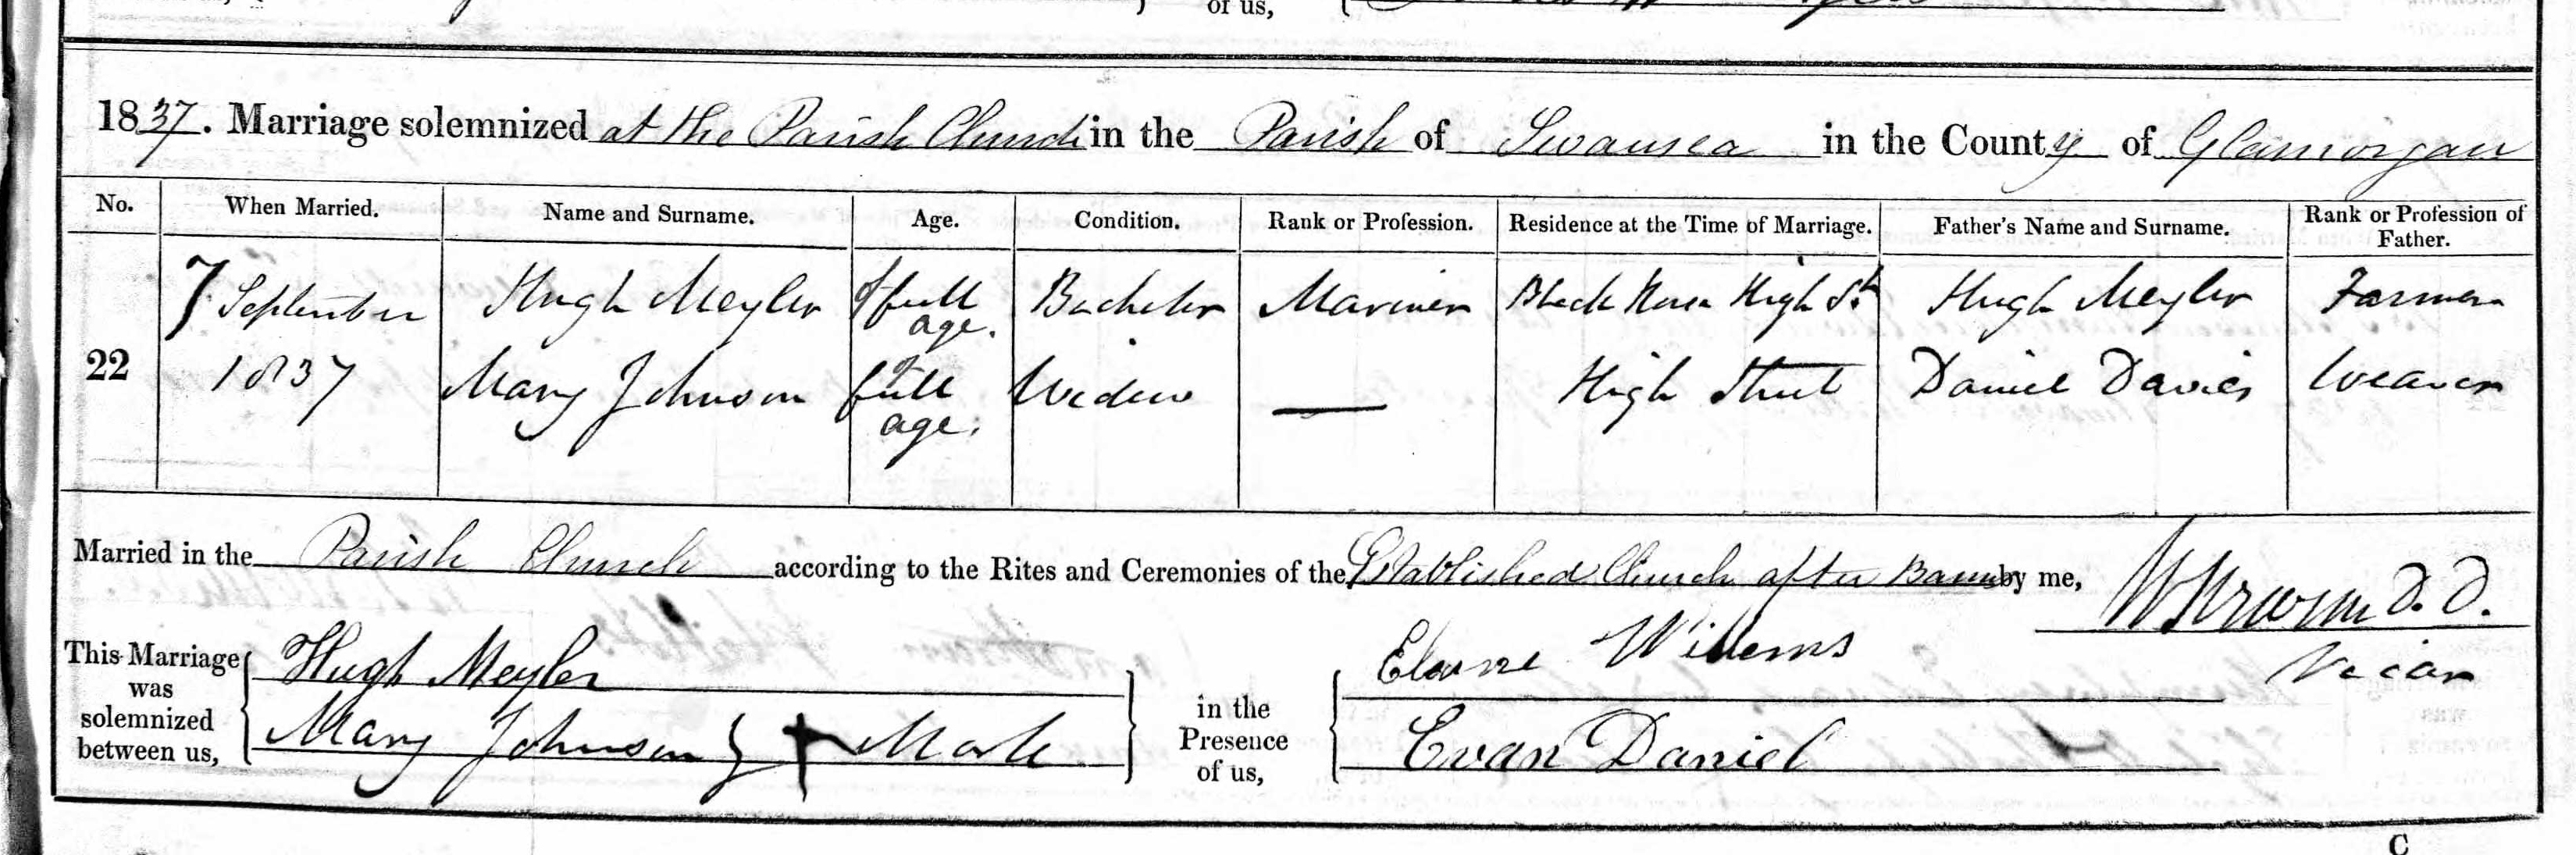 of us,
1837. Marriage solemnized at the Parish Church in the Parish of Swansea in the County of Glamorgan
No. When Married. Name and Surname. Age. Condition. Rank or Profession. Residence at the Time of Marriage. Father's Name and Surname. Rank or Profession of Father.
7 September Hugh Meyler of full age. Bachelor Mariner Black Horse High St Hugh Meyler Farmer
22 1837 Mary Johnson of full age. Widow — High Street Daniel Davies Weaver
Married in the Parish Church according to the Rites and Ceremonies of the Established Church after Banns by me, D.D.
Vicar
This Marriage was solemnized between us, Hugh Meyler
Mary Johnson + Mark
in the Presence of us, Willems
Evan Daniel
C